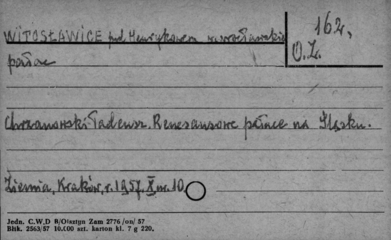 WITOSŁAWICE pod Henrykowem wrocławskie
162,
O.Z.
pałac
Chrzanowski Tadeusz. Renesansowe pałace na Śląsku.
Ziemia, Kraków, r. 1957. X nr. 10
Jedn. C.W.D R/Olsztyn Zam 2776/on/57
Błsk. 2563/57 10.000 szt. karton kl. 7 g 220.